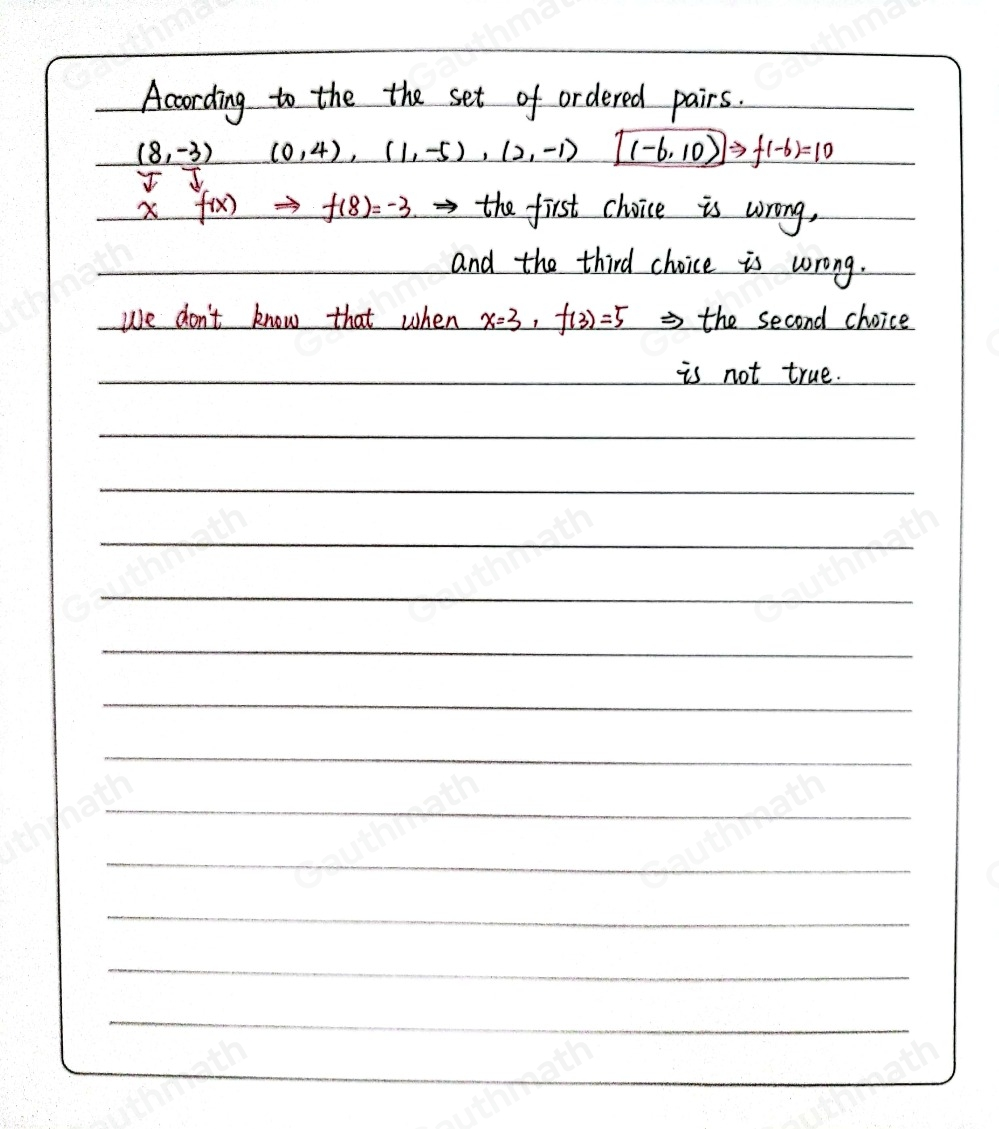 According to the the set of ordered pairs.
(8,-3) (0,4), (1,-5), (2,-1) (-6,10) ⇒ f(-6)=10
↓ ↓
x f(x) ⇒ f(8)=-3 ⇒ the first choice is wrong,
and the third choice is wrong.
We don't know that when x=3, f(3)=5 ⇒ the second choice
is not true.